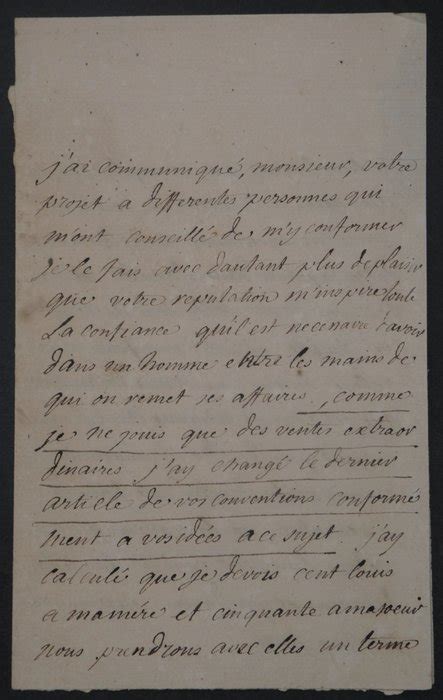 j'ai communiqué, monsieur, votre
projet a differentes personnes qui
m'ont conseillé de m'y conformer
je le fais avec dautant plus de plaisir
que votre reputation m'inspire toute
La confiance qu'il est necessaire d'avoir
dans un homme entre les mains de
qui on remet ses affaires. comme
je ne jouis que des ventes extraor
dinaires j'ay changé le dernier
article de vos conventions conformé
ment a vos idées a ce sujet. j'ay
calculé que je devois cent louis
a ma mére et cinquante a ma soeur
nous prendrons avec elles un terme